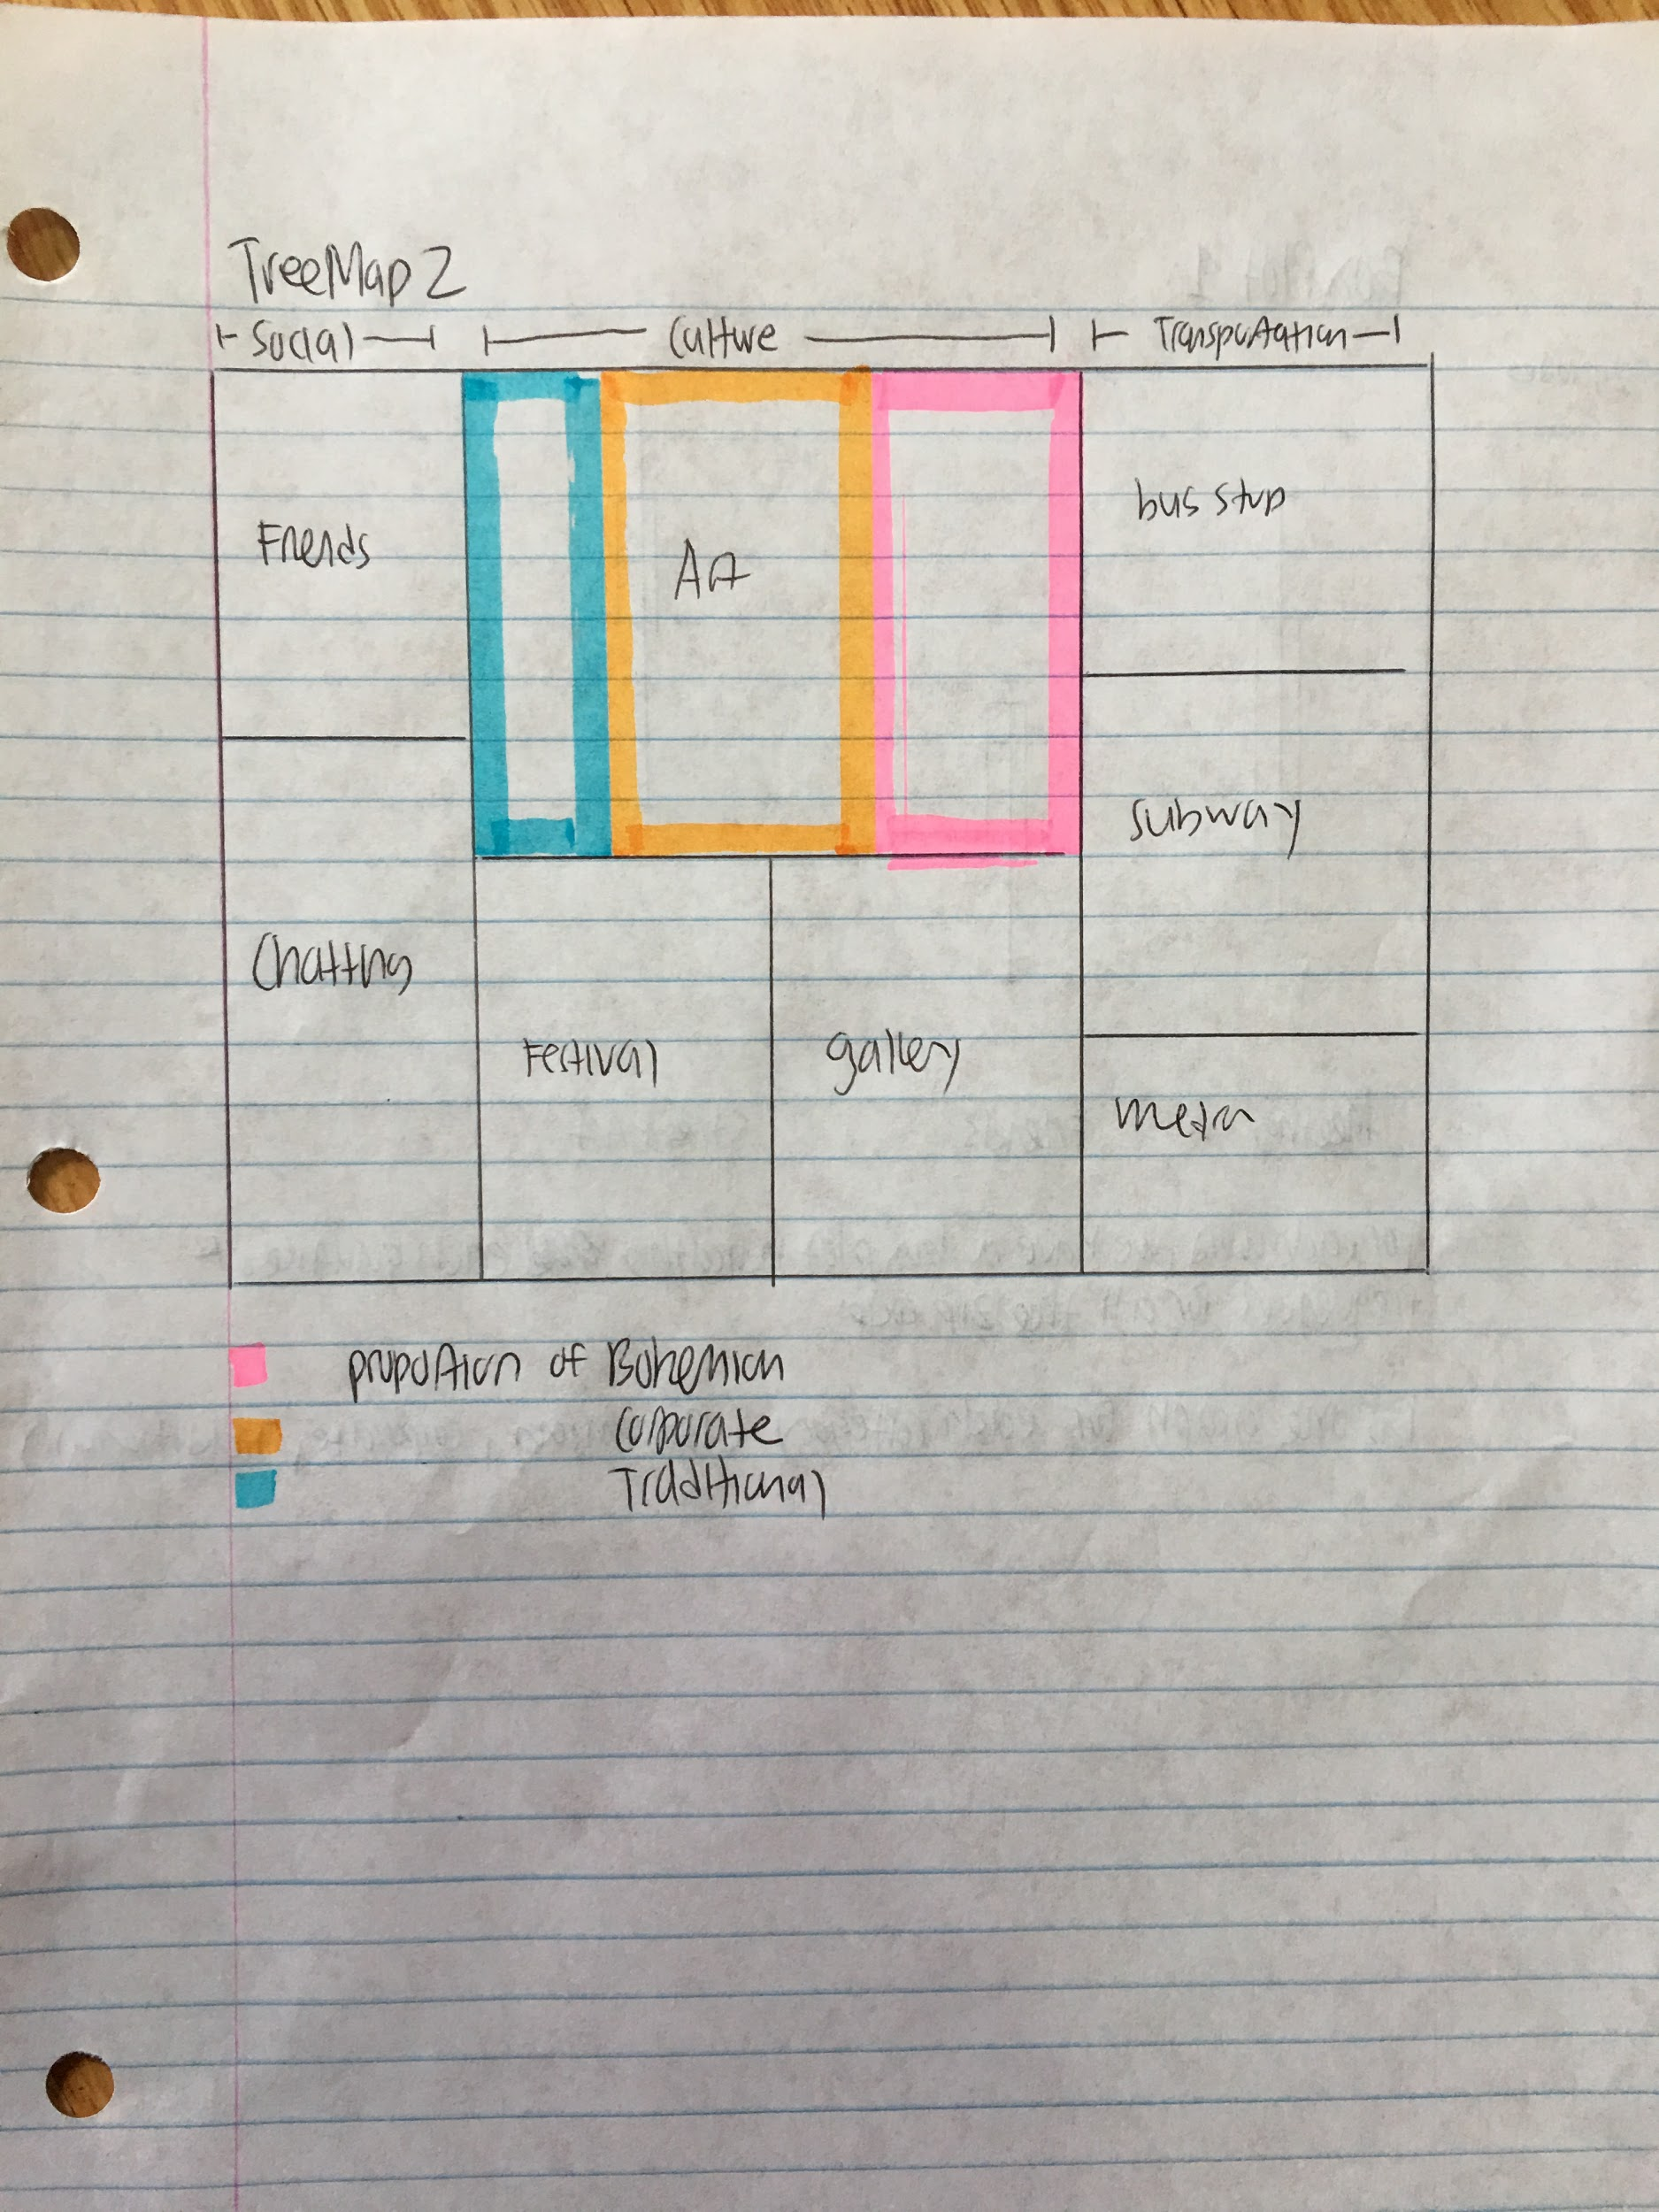 TreeMap 2
Social Culture Transportation
Friends
Art
bus stop
subway
Chatting
Festival
gallery
metro
proportion of Bohemian
Corporate
Traditional